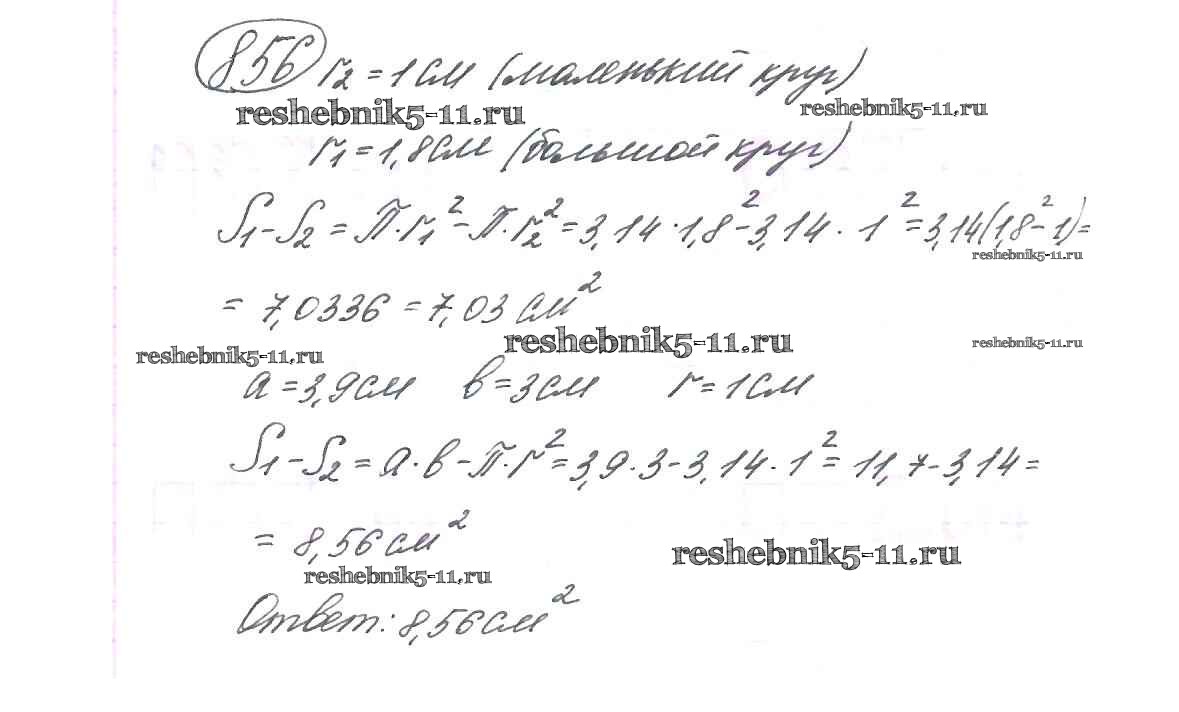 856 r₂ = 1 см (маленький круг)
reshebnik5-11.ru reshebnik5-11.ru
r₁ = 1,8 см (большой круг)
S₁ - S₂ = π·r₁² - π·r₂² = 3,14·1,8² - 3,14·1² = 3,14(1,8² - 1) =
reshebnik5-11.ru
= 7,0336 = 7,03 см²
reshebnik5-11.ru reshebnik5-11.ru reshebnik5-11.ru
a = 3,9 см в = 3 см r = 1 см
S₁ - S₂ = a·в - π·r² = 3,9·3 - 3,14·1² = 11,7 - 3,14 =
= 8,56 см²
reshebnik5-11.ru reshebnik5-11.ru
Ответ: 8,56 см²